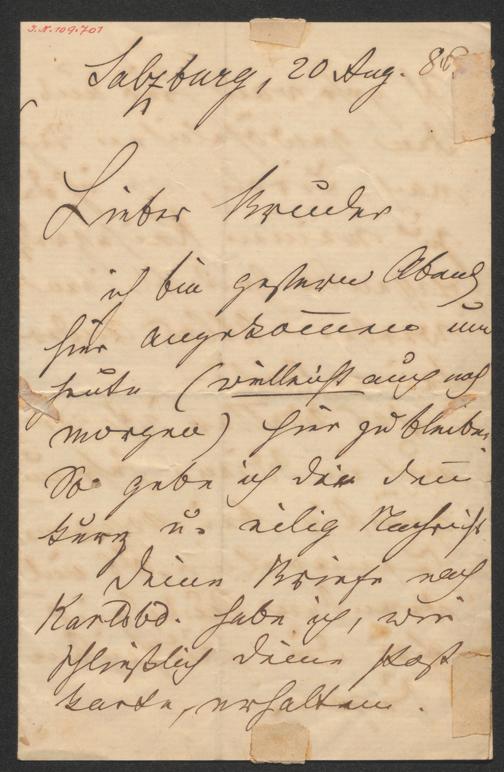 J.N. 109.701
Salzburg, 20 Aug. 86
Lieber Bruder
ich bin gestern Abend
hier angekom̅en um
heute (vielleicht auch noch
morgen) hier zu bleiben.
So gebe ich dir den̅
kurz u. eilig Nachricht
Deine Briefe nach
Karlsbd. habe ich, wie
schließlich deine Post
karte, erhalten.